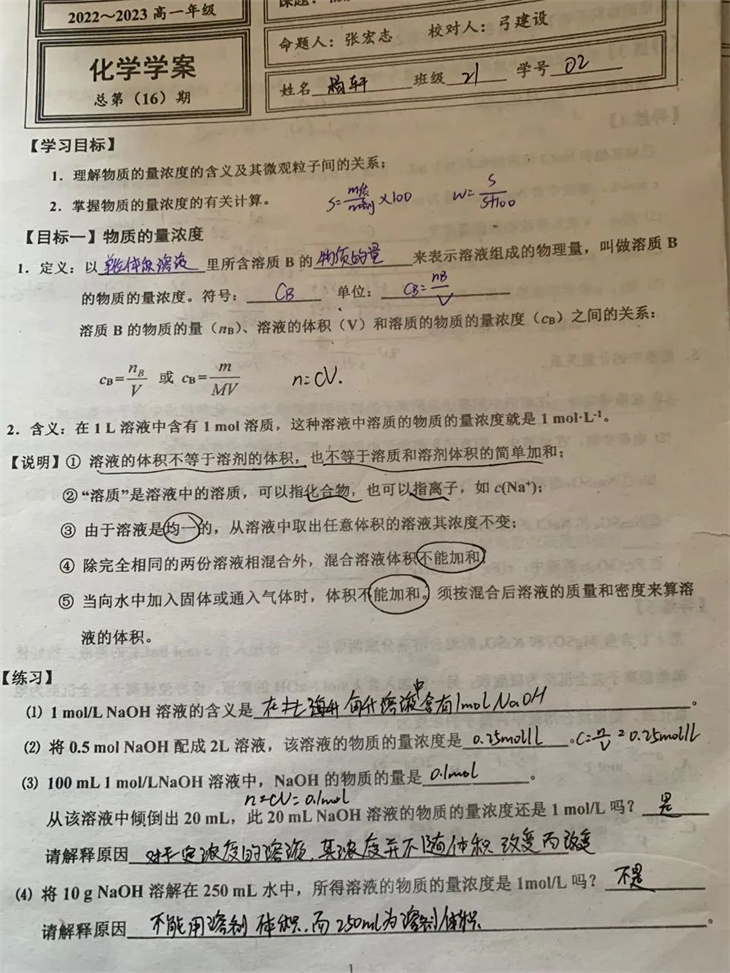 2022～2023 高一年级
化学学案
总第（16）期
命题人：张宏志 校对人：弓建设
姓名 杨轩 班级 21 学号 02
【学习目标】
1．理解物质的量浓度的含义及其微观粒子间的关系；
2．掌握物质的量浓度的有关计算。 S= ×100 w=S/S+100
【目标一】物质的量浓度
1．定义：以 单位体积溶液 里所含溶质 B 的 物质的量 来表示溶液组成的物理量，叫做溶质 B
的物质的量浓度。符号： CB 单位： CB=nB/V
溶质 B 的物质的量（nB）、溶液的体积（V）和溶质的物质的量浓度（cB）之间的关系：
cB=nB/V 或 cB=m/MV n=cV.
2．含义：在 1 L 溶液中含有 1 mol 溶质，这种溶液中溶质的物质的量浓度就是 1 mol·L⁻¹。
【说明】① 溶液的体积不等于溶剂的体积，也不等于溶质和溶剂体积的简单加和；
②“溶质”是溶液中的溶质，可以指化合物，也可以指离子，如 c(Na⁺)；
③ 由于溶液是均一的，从溶液中取出任意体积的溶液其浓度不变；
④ 除完全相同的两份溶液相混合外，混合溶液体积不能加和；
⑤ 当向水中加入固体或通入气体时，体积不能加和。须按混合后溶液的质量和密度来算溶
液的体积。
【练习】
⑴ 1 mol/L NaOH 溶液的含义是 每升溶液中含有1mol NaOH 。
⑵ 将 0.5 mol NaOH 配成 2L 溶液，该溶液的物质的量浓度是 0.25mol/L 。C=n/V=0.25mol/L
⑶ 100 mL 1 mol/LNaOH 溶液中，NaOH 的物质的量是 0.1mol 。
n=cV=0.1mol
从该溶液中倾倒出 20 mL，此 20 mL NaOH 溶液的物质的量浓度还是 1 mol/L 吗？ 是
请解释原因 对于一定浓度的溶液，其浓度并不随体积改变而改变
⑷ 将 10 g NaOH 溶解在 250 mL 水中，所得溶液的物质的量浓度是 1mol/L 吗？ 不是
请解释原因 不能用溶剂体积，而250ml为溶剂体积 。
1